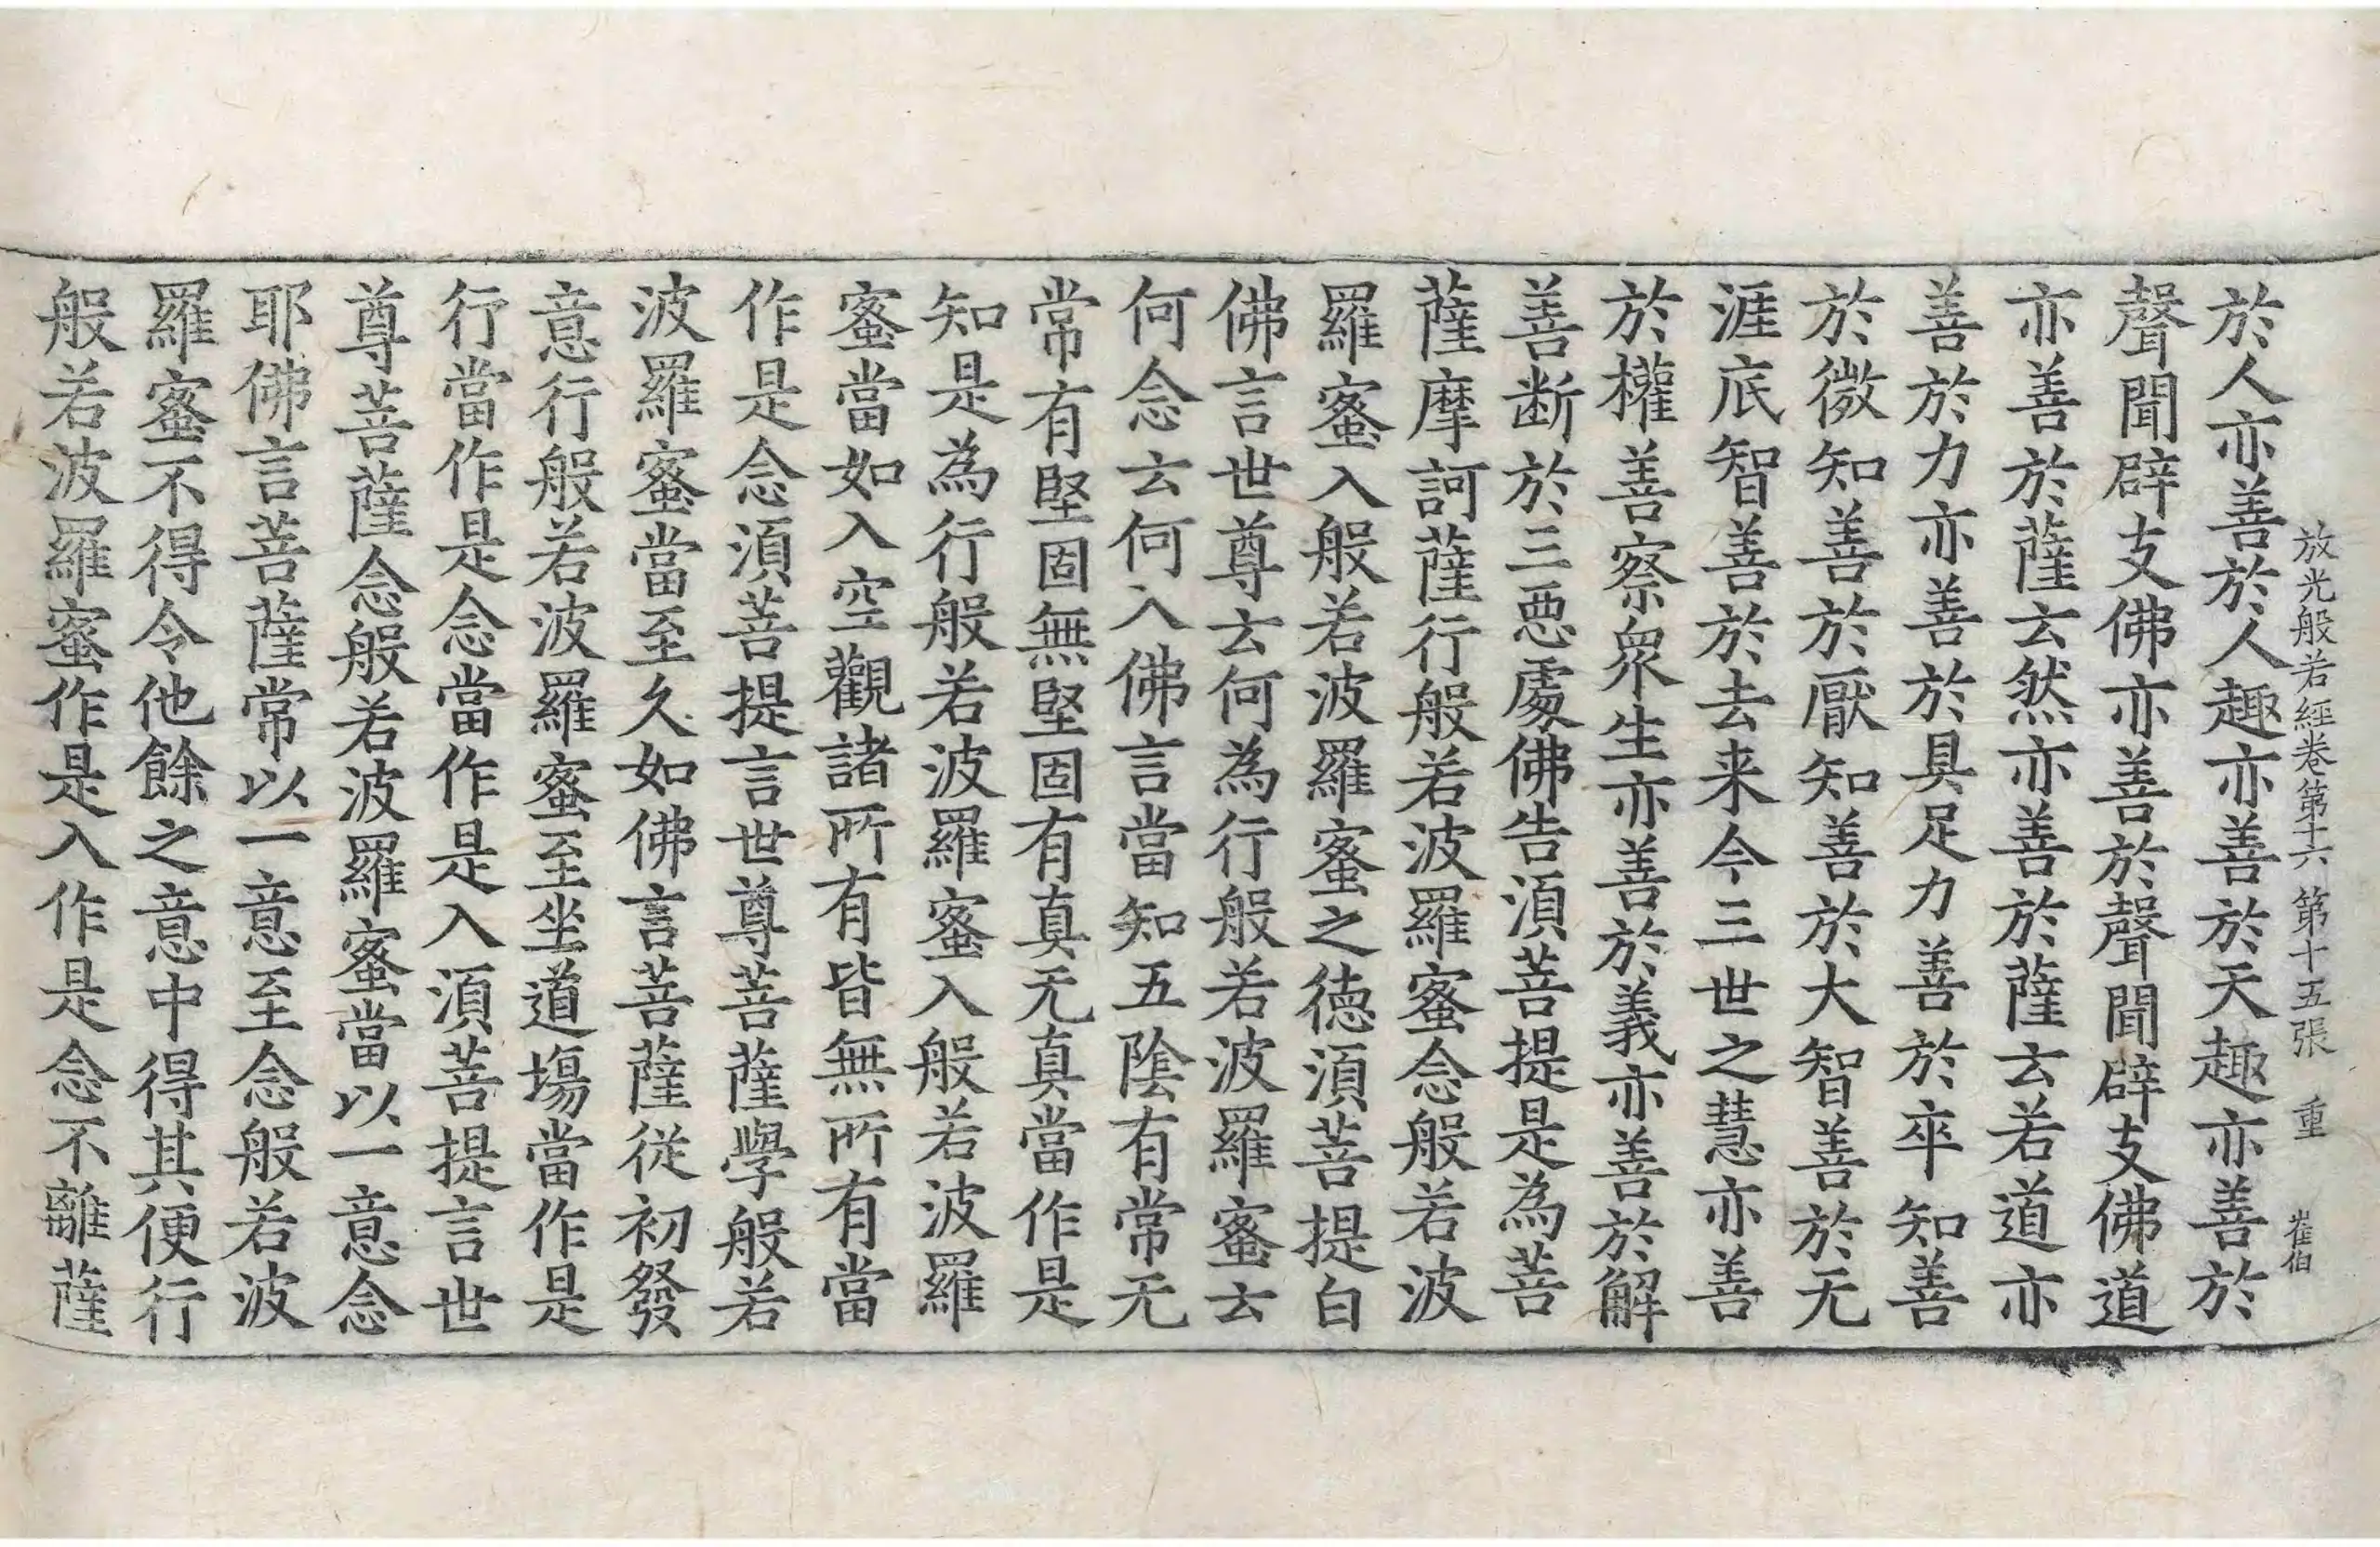 放光般若經卷第十六 第十五張 重 崔伯
於人亦善於人趣亦善於天趣亦善於
聲聞辟支佛亦善於聲聞辟支佛道
亦善於薩云然亦善於薩云若道亦
善於力亦善於具足力善於卒知善
於微知善於厭知善於大智善於无
涯底智善於去来今三世之慧亦善
於權善察眾生亦善於義亦善於解
善断於三惡處佛告湏菩提是為菩
薩摩訶薩行般若波羅蜜念般若波
羅蜜入般若波羅蜜之德湏菩提白
佛言世尊云何為行般若波羅蜜云
何念云何入佛言當知五陰有常无
常有堅固無堅固有真无真當作是
知是為行般若波羅蜜入般若波羅
蜜當如入空觀諸所有皆無所有當
作是念湏菩提言世尊菩薩學般若
波羅蜜當至久如佛言菩薩從初發
意行般若波羅蜜至坐道場當作是
行當作是念當作是入湏菩提言世
尊菩薩念般若波羅蜜當以一意念
耶佛言菩薩常以一意至念般若波
羅蜜不得令他餘之意中得其便行
般若波羅蜜作是入作是念不離薩